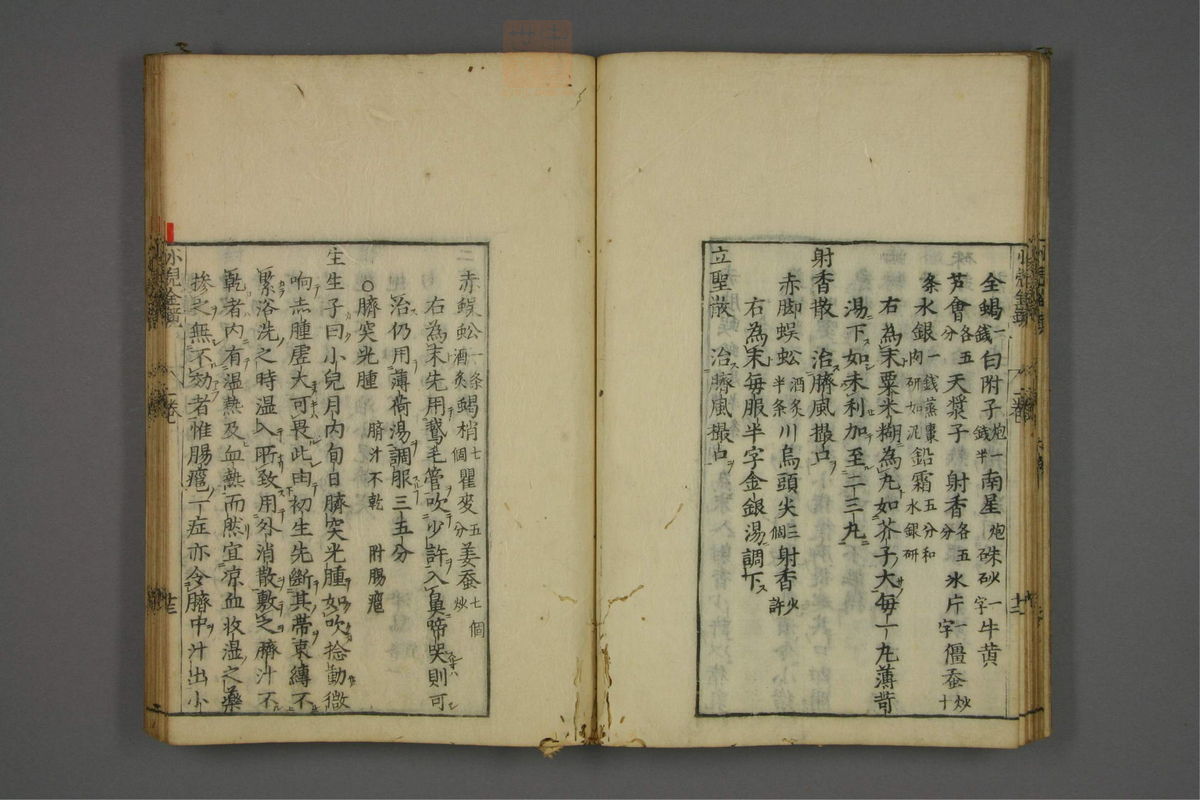 全蝎一錢白附子炮一錢半南星炮硃砂一字牛黄
芦會各五分天漿子 射香各五分氷片一字僵蚕炒十
条水銀一錢蒸棗肉研如泥鉛霜五分和水銀研
右為末粟米糊為丸如芥子大毎一九薄苛
湯下如未利加至二三九
射香散 治臍風撮口
赤脚蜈蚣酒炙半条川烏頭尖三個射香少許
右為末毎服半字金銀湯調下
立聖散 治臍風撮口
赤蜈蚣一条酒炙蝎梢七個瞿麥五分姜蚕七個炒
右為末先用鵝毛管吹少許入鼻啼哭則可
治仍用薄荷湯調服三五分
○臍突光腫 臍汁不乾 附腸癰
生生子曰小兒月内旬日臍突光腫如吹捻動微
响赤腫虚大可畏此由初生先斷其帯束縛不
緊浴洗之時温入所致用外消散敷之臍汁不
乾者内有温熱及血熱而然宜凉血收湿之藥
摻之無不効者惟腸癰一症亦令臍中汁出小